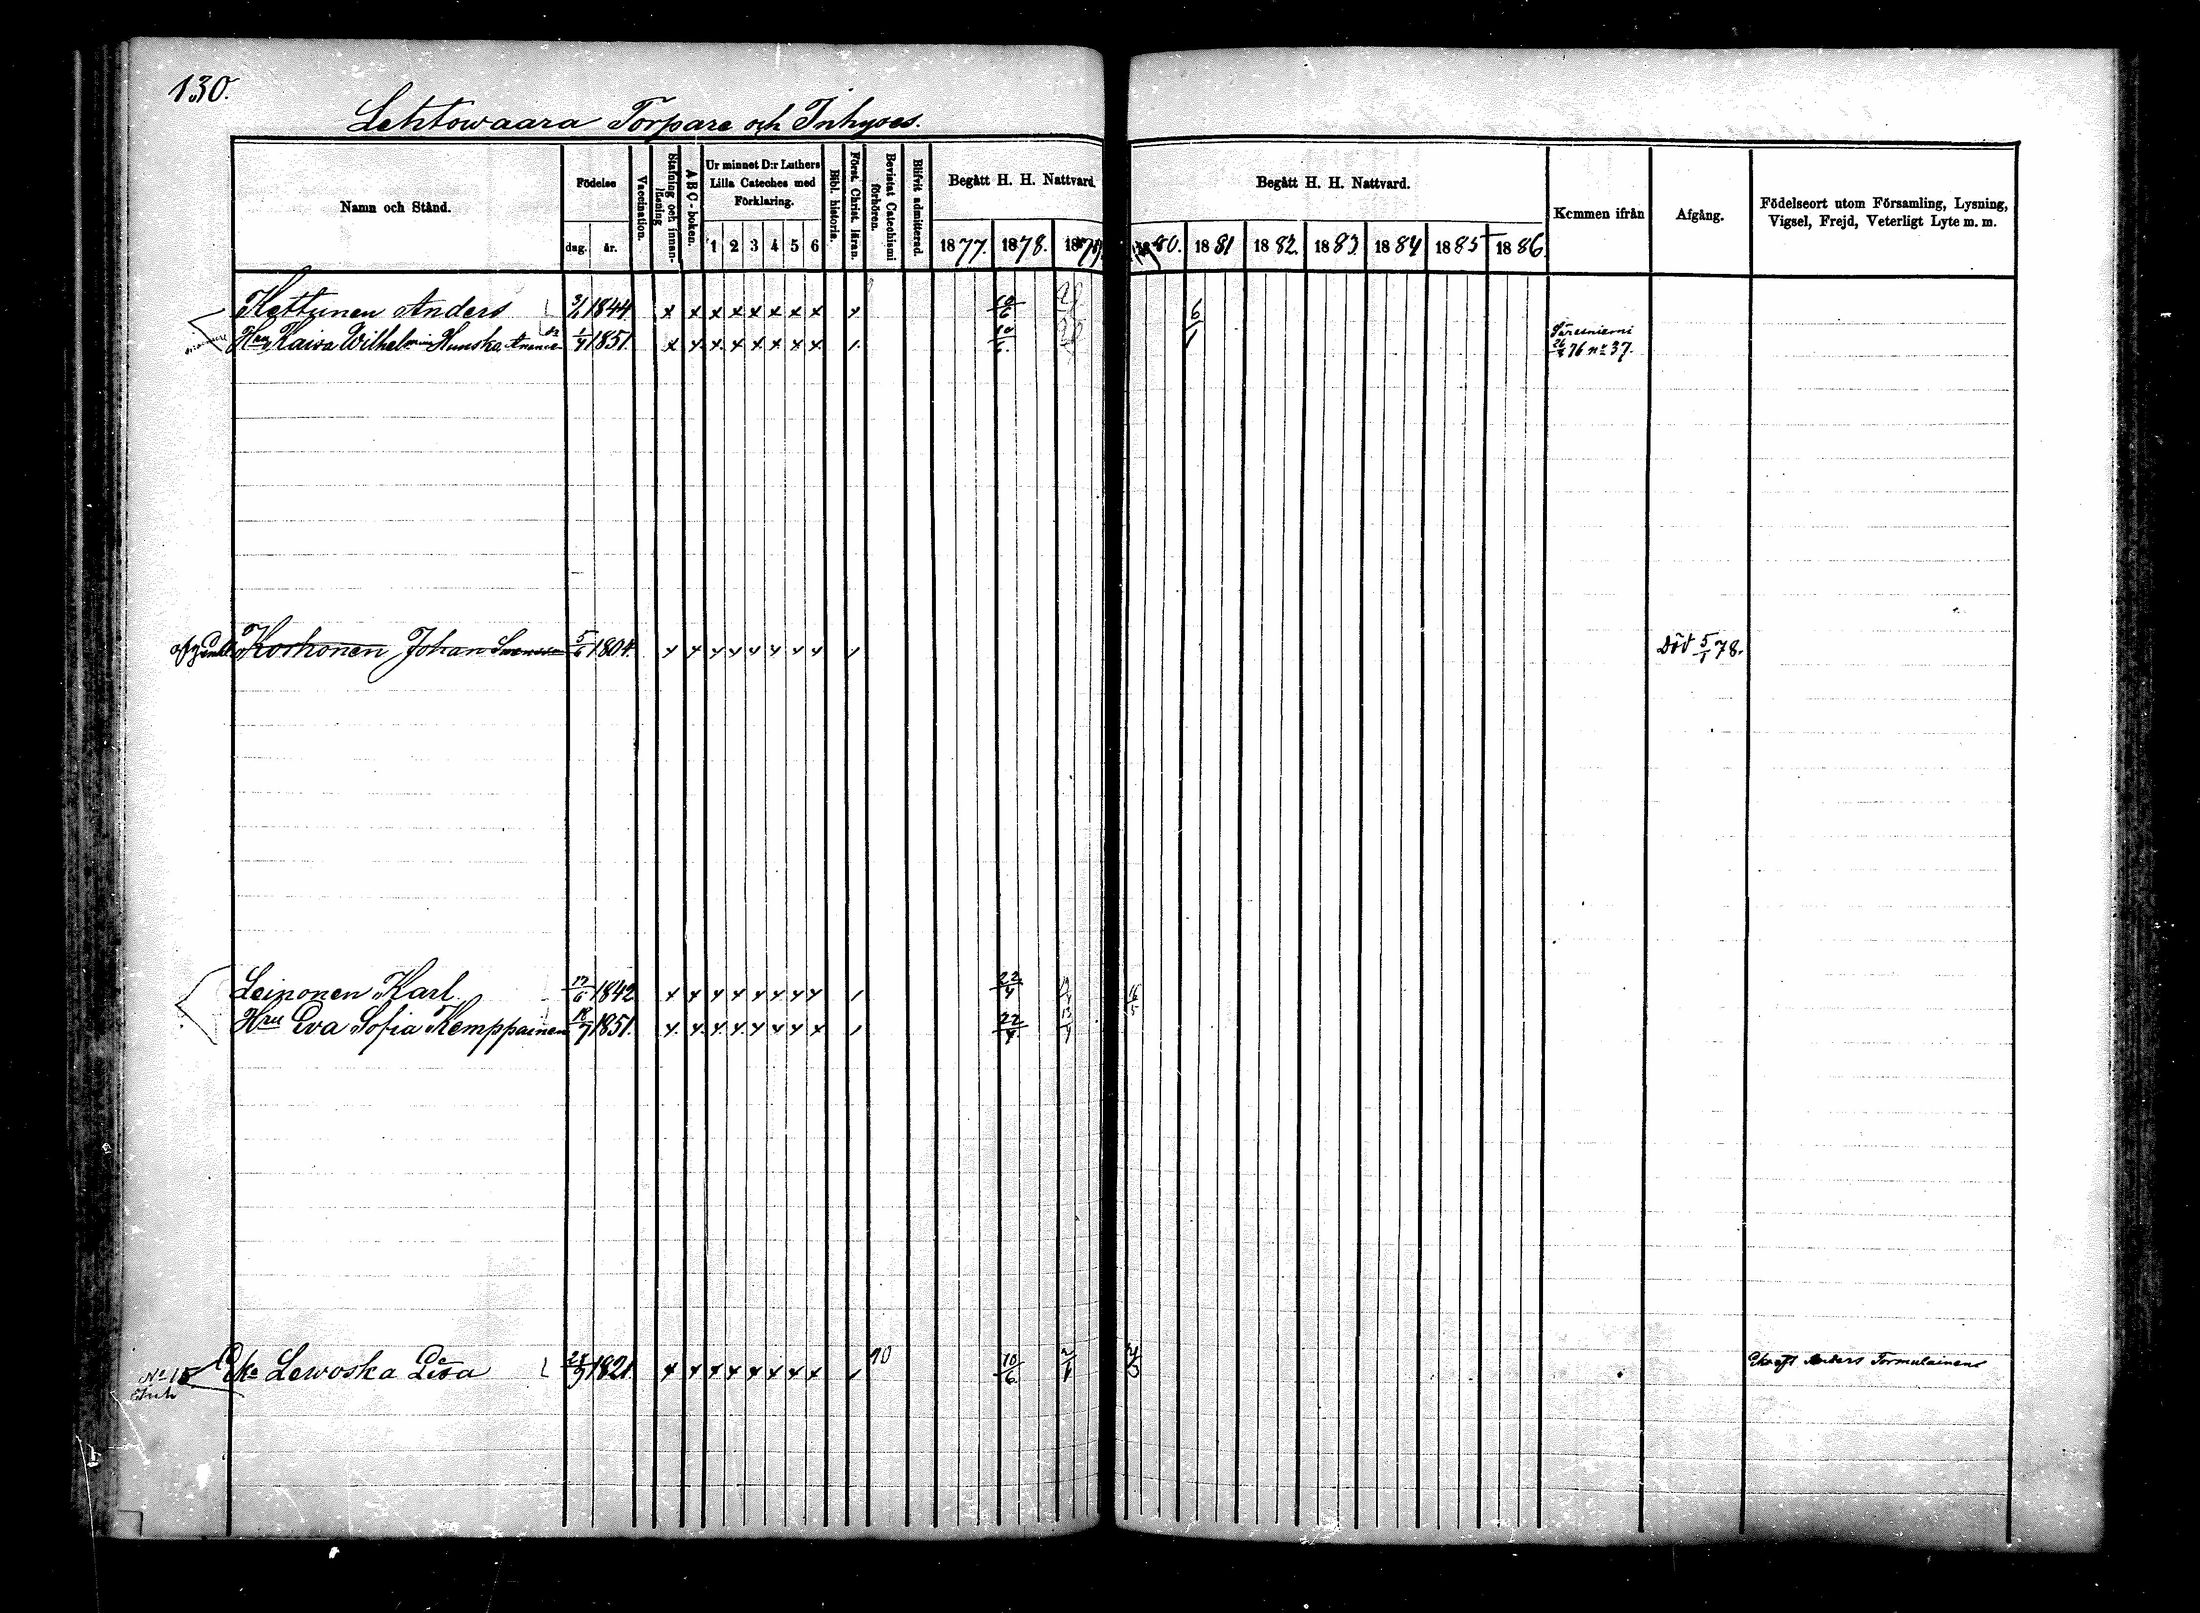 130.
Lehtowaara Torpare och Inhyses.
Namn och Stånd.
Födelse
dag. år.
Vaccination.
Stafning och innanläsning
ABC-boken.
Ur minnet D:r Luthers Lilla Cateches med Förklaring.
1 2 3 4 5 6
Bibl. historia.
Först. Christ. läran.
Bevistat Catechismi förhören.
Blifvit admitterad.
Begått H. H. Nattvard.
1877. 1878. 1879.
Begått H. H. Nattvard.
80. 1881 1882. 1883. 1884 1885 1886.
Kommen ifrån
Afgång.
Födelseort utom Församling, Lysning, Vigsel, Frejd, Veterligt Lyte m. m.
Kettunen Anders 1844 x x x x x x x x 10/6 6/1
Hru Kaisa Wilhelmina Hunska 1/4 1851. x x x x x x x x 10/6 Säresniemi 26/4 76 nr 37.
Koskonen Johan Svensson 5/6 1804. x x x x x x x x Död 5/1 78.
Leinonen Karl 17/6 1842 x x x x x x x x 22/4 16/5
Hru Eva Sofia Kemppainen 18/7 1851. x x x x x x x x 22/4 13/4
No 15 Eka Lewoska Lisa 1821. x x x x x x x x 10 10/6 2/6
Eka eft Anders Tormulainens